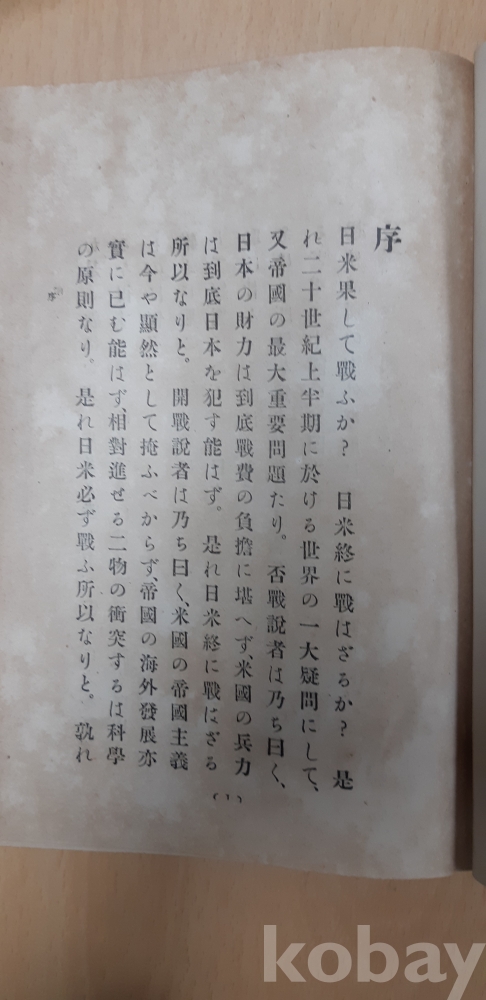 序
日米果して戰ふか？　日米終に戰はざるか？　是
れ二十世紀上半期に於ける世界の一大疑問にして、
又帝國の最大重要問題たり。　否戰說者は乃ち曰く、
日本の財力は到底戰費の負擔に堪へず、米國の兵力
は到底日本を犯す能はず。　是れ日米終に戰はざる
所以なりと。　開戰說者は乃ち曰く、米國の帝國主義
は今や顯然として掩ふべからず、帝國の海外發展亦
實に已む能はず、相對進せる二物の衝突するは科學
の原則なり。　是れ日米必ず戰ふ所以なりと。　孰れ
序
(1)
kobay